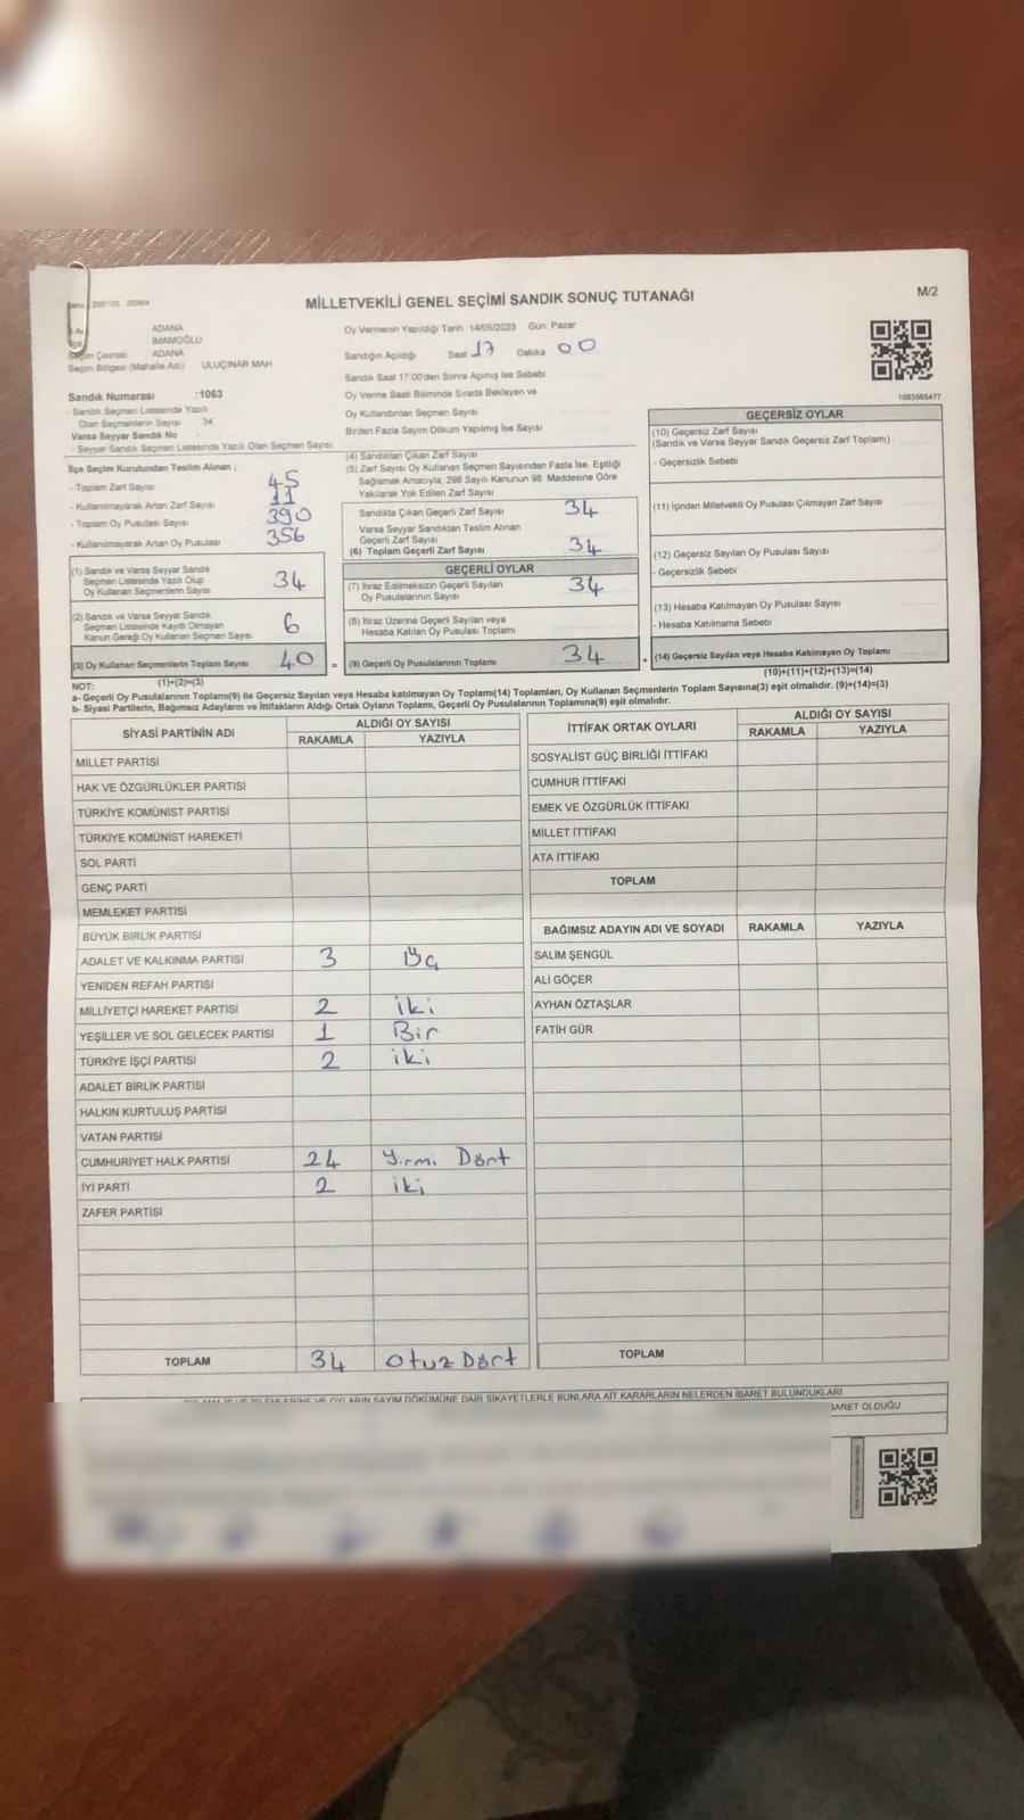 MİLLETVEKİLİ GENEL SEÇİMİ SANDIK SONUÇ TUTANAĞI
M/2
ADANA
İMAMOĞLU
Seçim Çevresi ADANA
Seçim Bölgesi (Mahalle Adı) ULUÇINAR MAH
Oy Vermenin Yapıldığı Tarih 14/05/2023 Gün: Pazar
Sandığın Açıldığı Saat 17 Dakika 00
Sandık Saat 17:00'den Sonra Açılmış İse Sebebi
Oy Verme Saati Bitiminde Sırada Bekleyen ve
Oy Kullandırılan Seçmen Sayısı
Birden Fazla Sayım Döküm Yapılmış İse Sayısı
Sandık Numarası :1063
- Sandık Seçmen Listesinde Yazılı
Olan Seçmenlerin Sayısı 34
Varsa Seyyar Sandık No
- Seyyar Sandık Seçmen Listesinde Yazılı Olan Seçmen Sayısı
İlçe Seçim Kurulundan Teslim Alınan ;
- Toplam Zarf Sayısı 45
- Kullanılmayarak Artan Zarf Sayısı 11
- Toplam Oy Pusulası Sayısı 390
- Kullanılmayarak Artan Oy Pusulası 356
(1) Sandık ve Varsa Seyyar Sandık
Seçmen Listesinde Yazılı Olup
Oy Kullanan Seçmenlerin Sayısı 34
(2) Sandık ve Varsa Seyyar Sandık
Seçmen Listesinde Kayıtlı Olmayan
Kanun Gereği Oy Kullanan Seçmen Sayısı 6
(3) Oy Kullanan Seçmenlerin Toplam Sayısı 40
(1)+(2)=(3)
(4) Sandıktan Çıkan Zarf Sayısı
(5) Zarf Sayısı Oy Kullanan Seçmen Sayısından Fazla İse, Eşitliği
Sağlamak Amacıyla, 298 Sayılı Kanunun 98. Maddesine Göre
Yakılarak Yok Edilen Zarf Sayısı
Sandıkta Çıkan Geçerli Zarf Sayısı 34
Varsa Seyyar Sandıktan Teslim Alınan
Geçerli Zarf Sayısı
(6) Toplam Geçerli Zarf Sayısı 34
GEÇERLİ OYLAR
(7) İtiraz Edilmeksizin Geçerli Sayılan
Oy Pusulalarının Sayısı 34
(8) İtiraz Üzerine Geçerli Sayılan veya
Hesaba Katılan Oy Pusulası Toplamı
(9) Geçerli Oy Pusulalarının Toplamı 34
1063565477
GEÇERSİZ OYLAR
(10) Geçersiz Zarf Sayısı
(Sandık ve Varsa Seyyar Sandık Geçersiz Zarf Toplamı)
- Geçersizlik Sebebi
(11) İçinden Milletvekili Oy Pusulası Çıkmayan Zarf Sayısı
(12) Geçersiz Sayılan Oy Pusulası Sayısı
- Geçersizlik Sebebi
(13) Hesaba Katılmayan Oy Pusulası Sayısı
- Hesaba Katılmama Sebebi
(14) Geçersiz Sayılan veya Hesaba Katılmayan Oy Toplamı
(10)+(11)+(12)+(13)=(14)
NOT:
a- Geçerli Oy Pusulalarının Toplamı(9) ile Geçersiz Sayılan veya Hesaba katılmayan Oy Toplamı(14) Toplamları, Oy Kullanan Seçmenlerin Toplam Sayısına(3) eşit olmalıdır. (9)+(14)=(3)
b- Siyasi Partilerin, Bağımsız Adayların ve İttifakların Aldığı Ortak Oyların Toplamı, Geçerli Oy Pusulalarının Toplamına(9) eşit olmalıdır.
SİYASİ PARTİNİN ADI ALDIĞI OY SAYISI
RAKAMLA YAZIYLA
MİLLET PARTİSİ
HAK VE ÖZGÜRLÜKLER PARTİSİ
TÜRKİYE KOMÜNİST PARTİSİ
TÜRKİYE KOMÜNİST HAREKETİ
SOL PARTİ
GENÇ PARTİ
MEMLEKET PARTİSİ
BÜYÜK BİRLİK PARTİSİ
ADALET VE KALKINMA PARTİSİ 3 Üç
YENİDEN REFAH PARTİSİ
MİLLİYETÇİ HAREKET PARTİSİ 2 iki
YEŞİLLER VE SOL GELECEK PARTİSİ 1 Bir
TÜRKİYE İŞÇİ PARTİSİ 2 iki
ADALET BİRLİK PARTİSİ
HALKIN KURTULUŞ PARTİSİ
VATAN PARTİSİ
CUMHURİYET HALK PARTİSİ 24 Yirmi Dört
İYİ PARTİ 2 iki
ZAFER PARTİSİ
TOPLAM 34 Otuz Dört
İTTİFAK ORTAK OYLARI ALDIĞI OY SAYISI
RAKAMLA YAZIYLA
SOSYALİST GÜÇ BİRLİĞİ İTTİFAKI
CUMHUR İTTİFAKI
EMEK VE ÖZGÜRLÜK İTTİFAKI
MİLLET İTTİFAKI
ATA İTTİFAKI
TOPLAM
BAĞIMSIZ ADAYIN ADI VE SOYADI RAKAMLA YAZIYLA
SALİM ŞENGÜL
ALİ GÖÇER
AYHAN ÖZTAŞLAR
FATİH GÜR
TOPLAM
OYLARIN SAYIM DÖKÜMÜNE DAİR ŞİKAYETLERLE BUNLARA AİT KARARLARIN NELERDEN İBARET BULUNDUKLARI
OLDUĞU